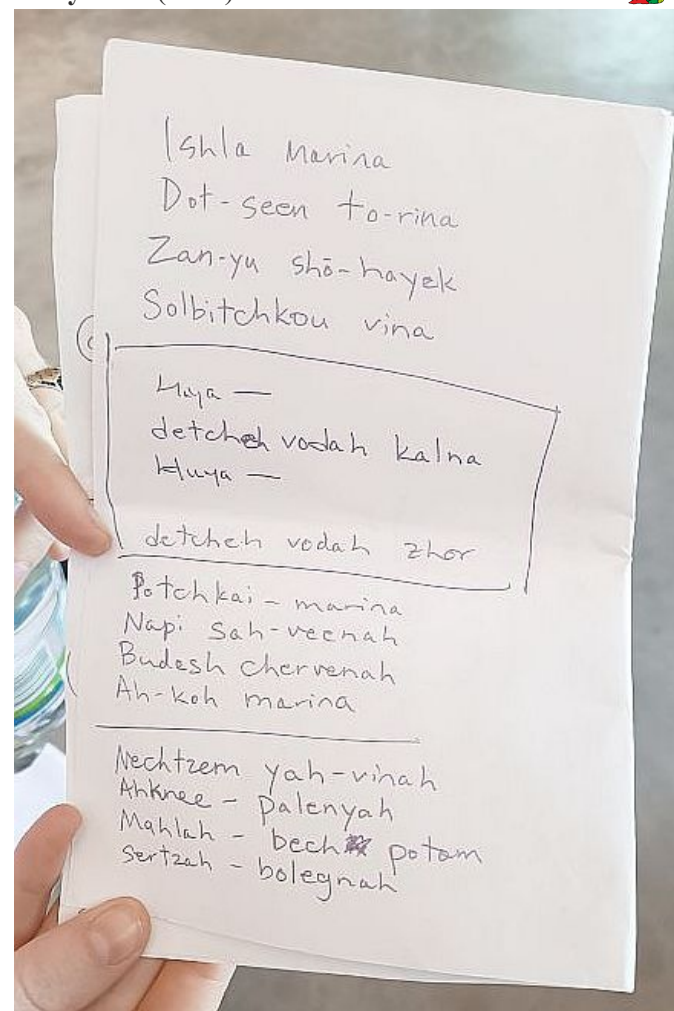 Ishla marina
Dot-seen to-rina
Zan-yu shō-hayek
Solbitchkou vina
Huya —
detcheh vodah kalna
Huya —
detcheh vodah zhor
Potchkai - marina
Napi sah-veenah
Budesh chervenah
Ah-koh marina
Nechtzem yah-vinah
Ahknee - palenyah
Mahlah - bech potom
Sertzah - bolegnah